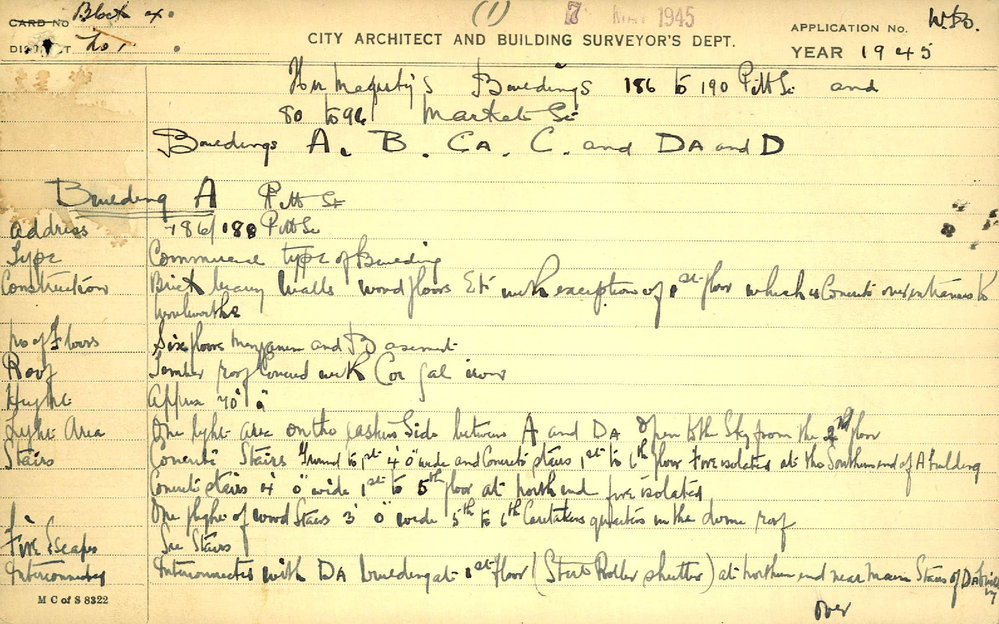 CARD NO Block 4.
(1)
7 MAY 1945
APPLICATION NO.
DISTRICT No 1.
CITY ARCHITECT AND BUILDING SURVEYOR'S DEPT.
YEAR 1945
Her Majesty's Buildings 186 to 190 Pitt St. and
80 to 96 Market St.
Buildings A. B. CA. C. and DA and D
Building A Pitt St
Address 186/188 Pitt St.
Type Commercial type of Building
Construction Brick heavy walls wood floors Etc with exception of 1st floor which is Concrete over entrances to
Woolworths
No of Floors Six floors Mezzanine and Basement
Roof Timber roof Covered with Cor gal iron
Height Approx 70' 0"
Light Area One light area on the eastern Side between A and DA open to the Sky from the 2nd floor
Stairs Concrete Stairs Ground to 1st 4' 0" wide and Concrete stairs 1st to 6th floor Fire isolated at the Southern end of A building
Concrete stairs 4' 0" wide 1st to 5th floor at north end fire isolated
One flight of wood Stairs 3' 0" wide 5th to 6th Caretakers quarters in the dome roof
Fire Escapes See Stairs
Interconnected with DA building at 1st floor (Steel Roller shutter) at northern end near Main Stairs of DA building
M C of S 8322
over